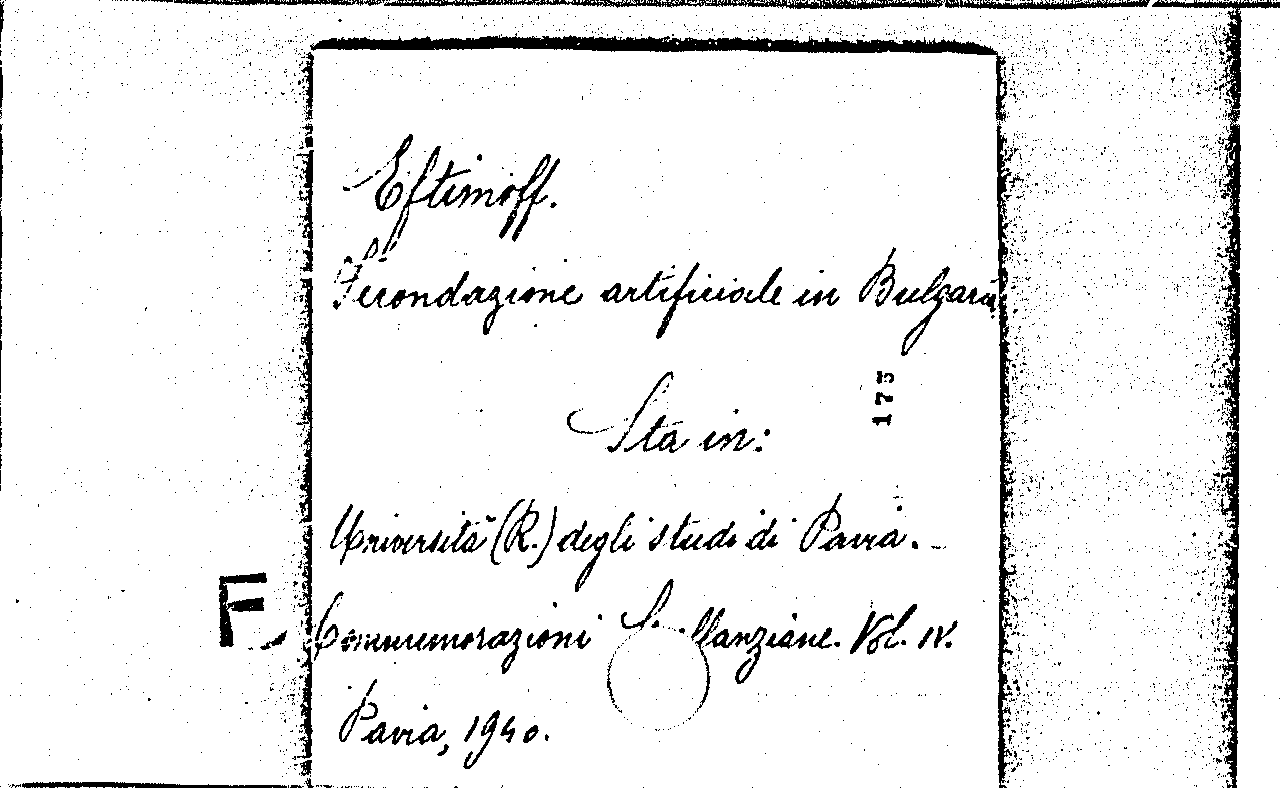 Eftimoff.
Fecondazione artificiale in Bulgaria
175
Sta in:
Università (R.) degli studi di Pavia. -
F
Commemorazioni Spallanziane. Vol. IV.
Pavia, 1940.